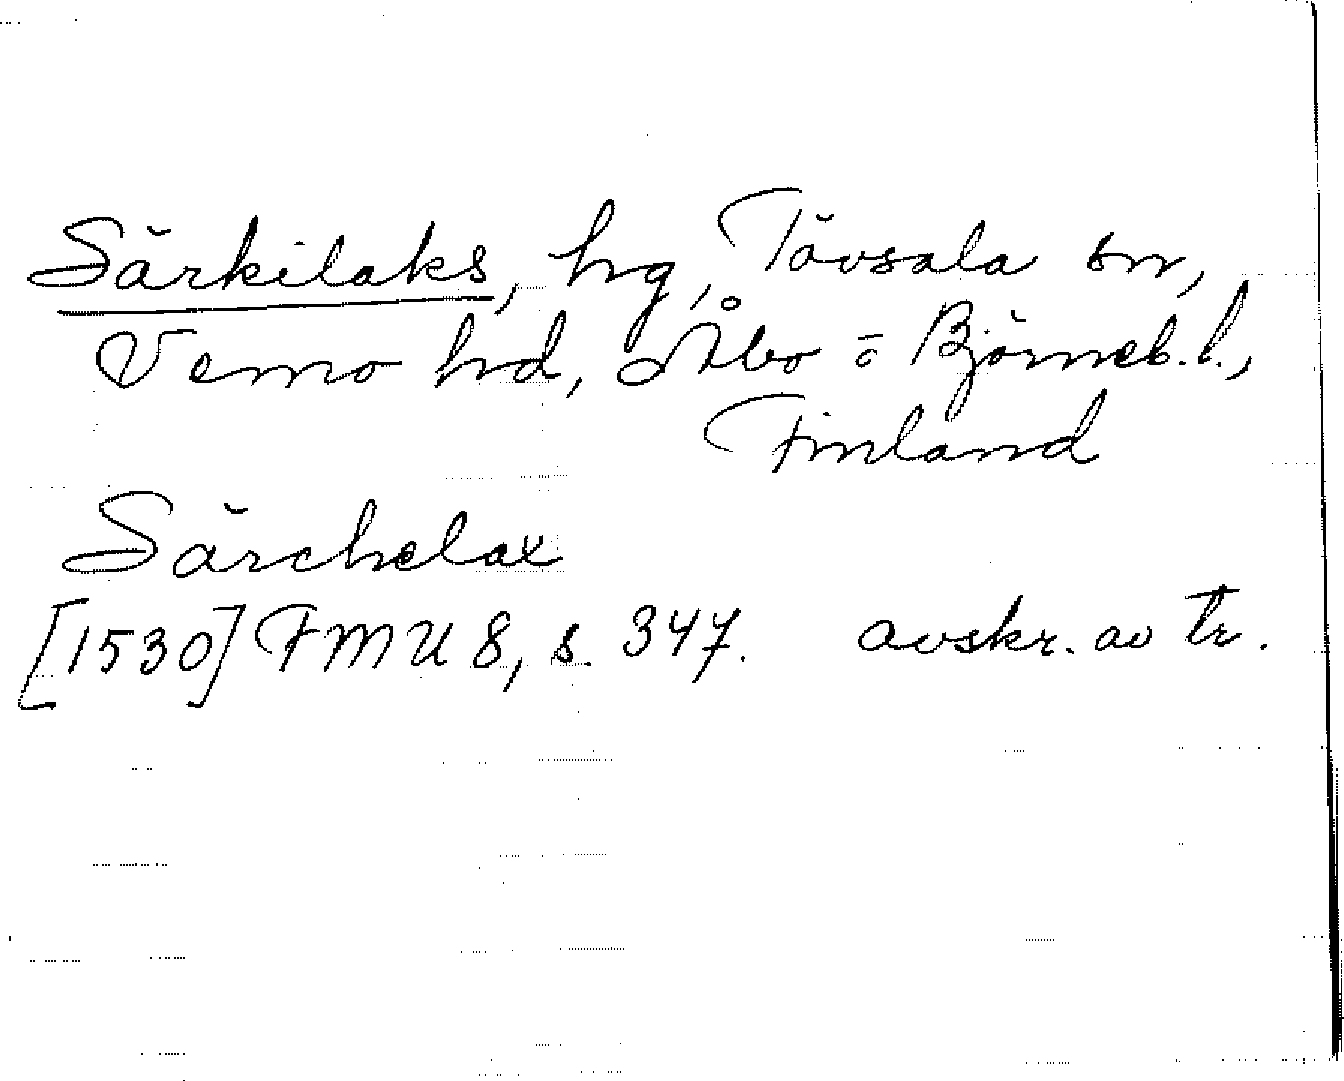 Särkilaks, hrg, Tövsala sn,
Vemo hd, Åbo o Björneb. l.,
Finland
Särchelax
[1530] FMU 8, s. 347. avskr. av tr.